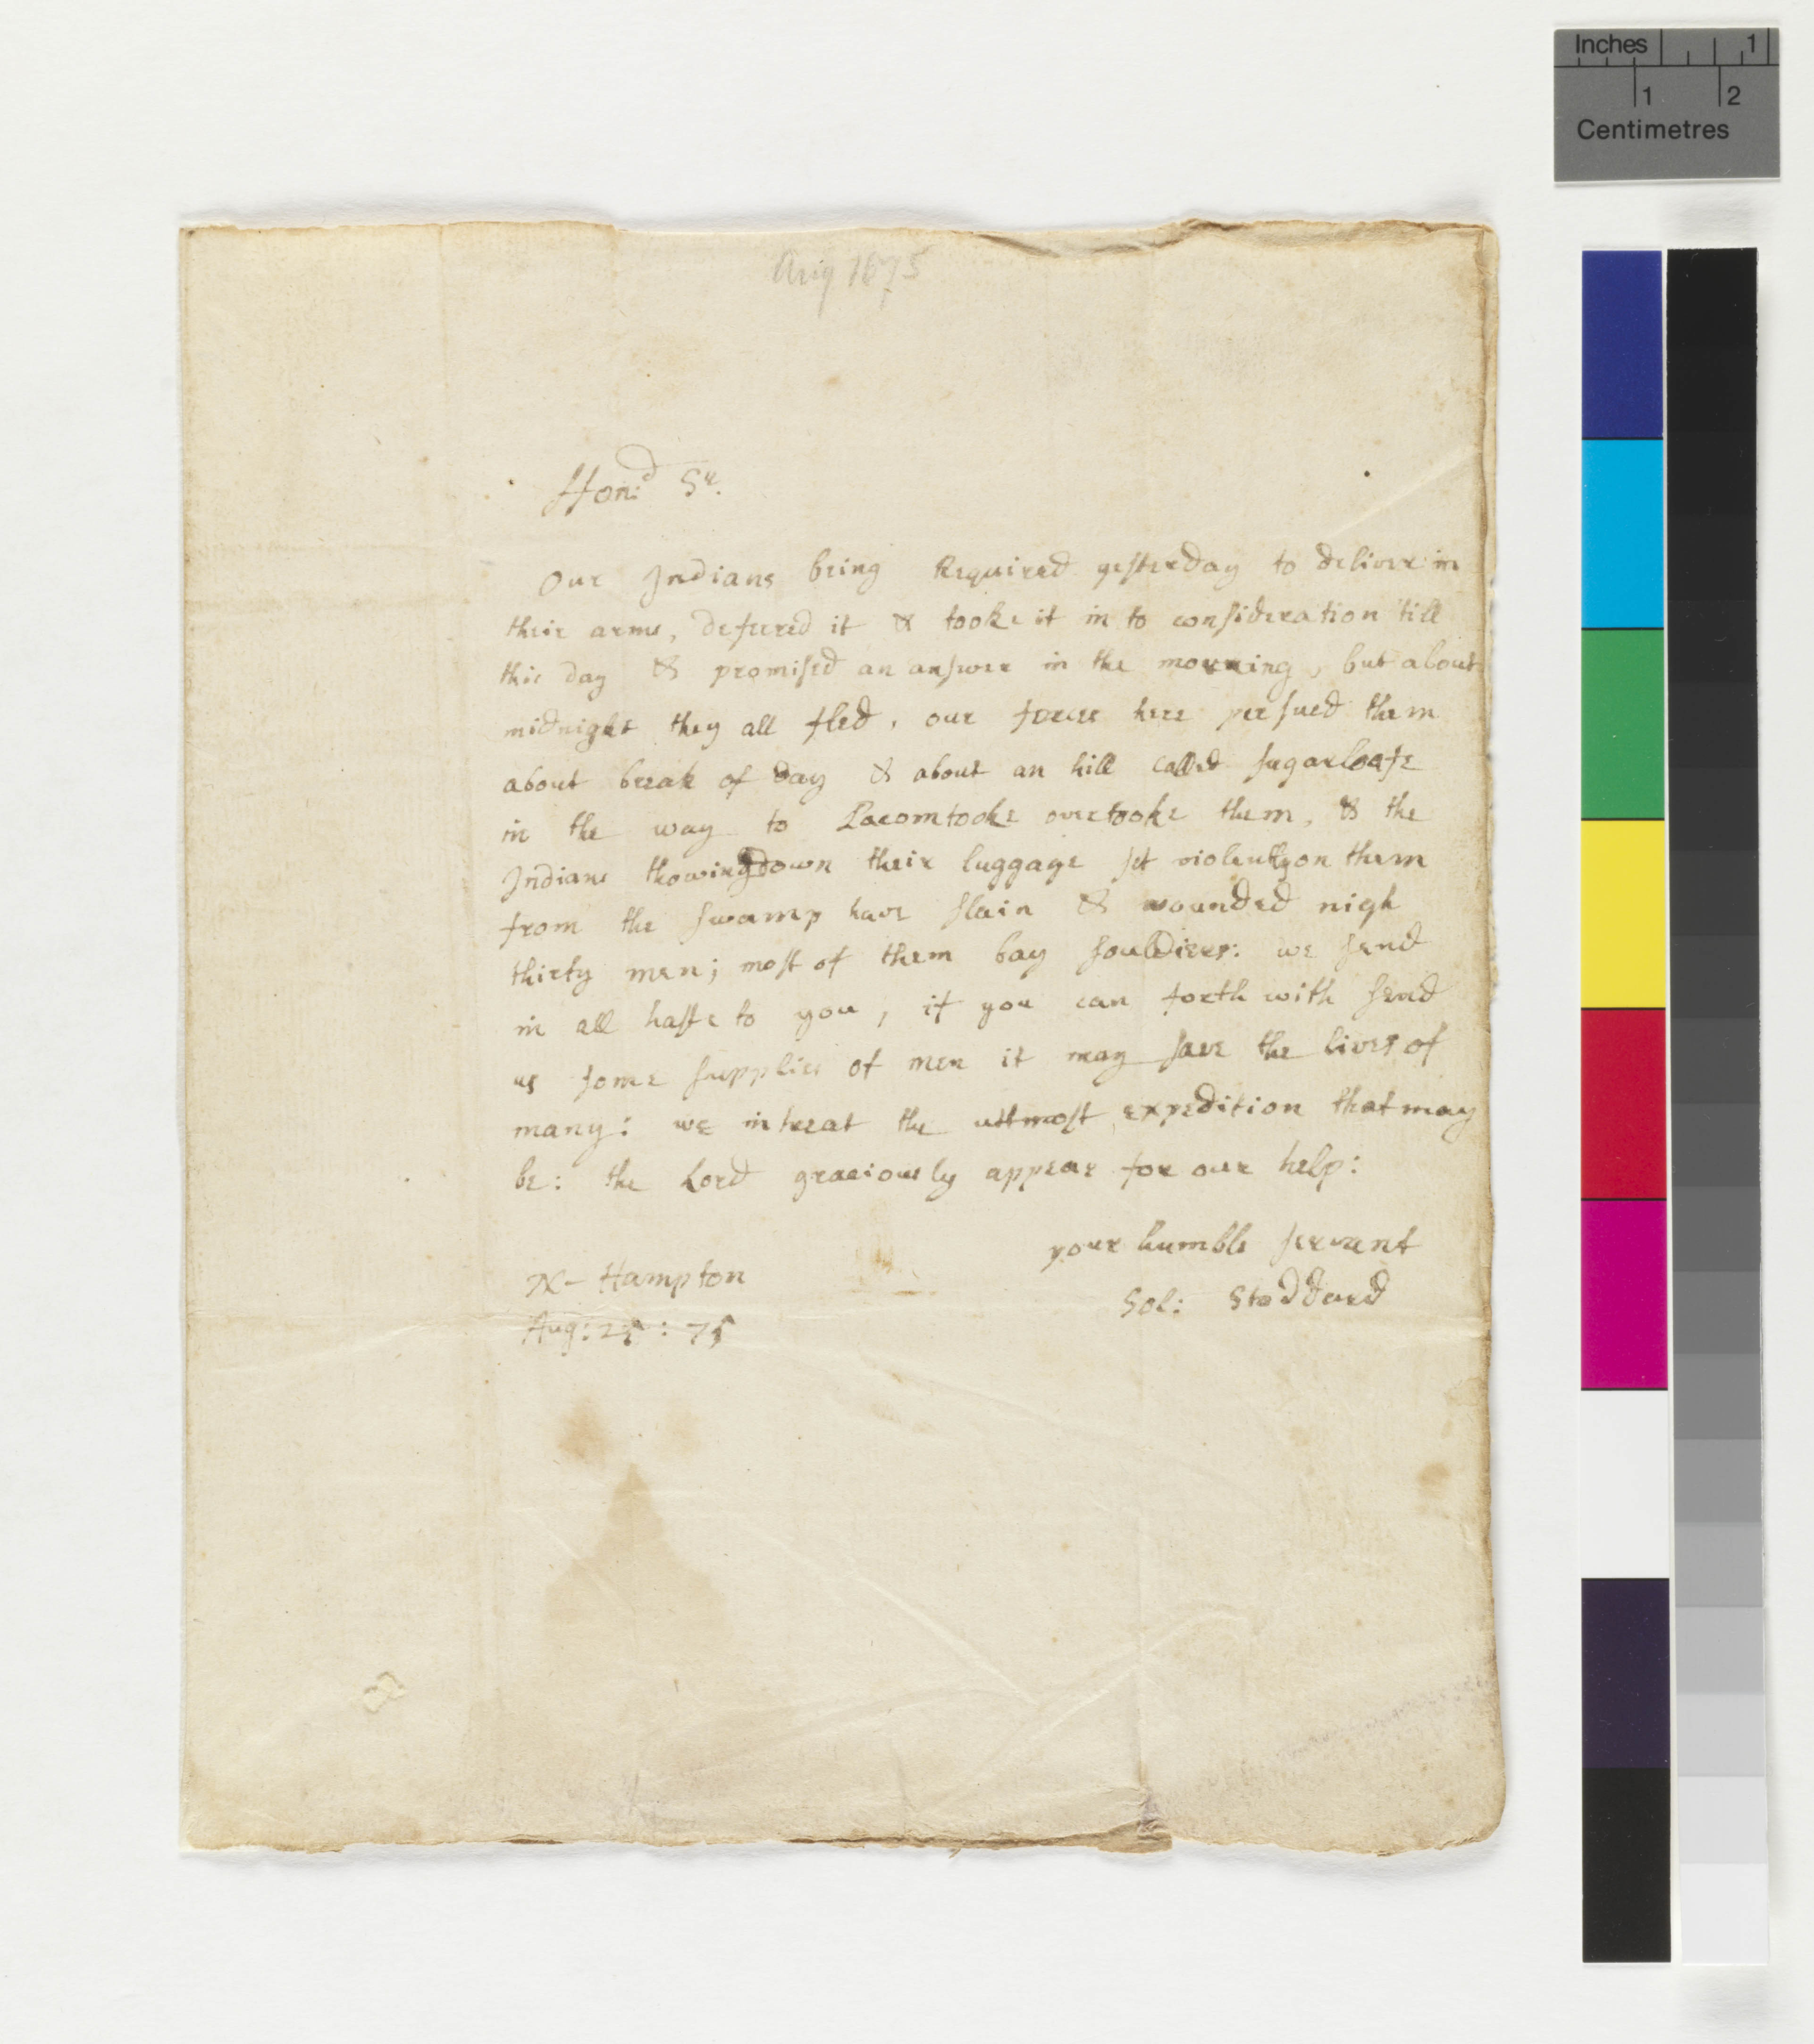 Inches 1
1 2
Centimetres
Aug 1675
Hon:d Sr.
Our Indians being Required yesterday to deliver in
their arms, defered it & tooke it in to consideration till
this day & promised an answer in the morning, but about
midnight they all fled, our forces here persued them
about break of day & about an hill called sugarloafe
in the way to Pacomtooke overtooke them, & the
Indians thowing down their luggage set violently on them
from the swamp have slain & wounded nigh
thirty men; most of them bay souldiers: we send
in all haste to you, if you can forth with send
us some supplies of men it may save the lives of
many: we intreat the uttmost expedition that may
be: the Lord graciously appear for our help:
your humble servant
Sol: Stoddard
N-Hampton
Aug: 25 : 75